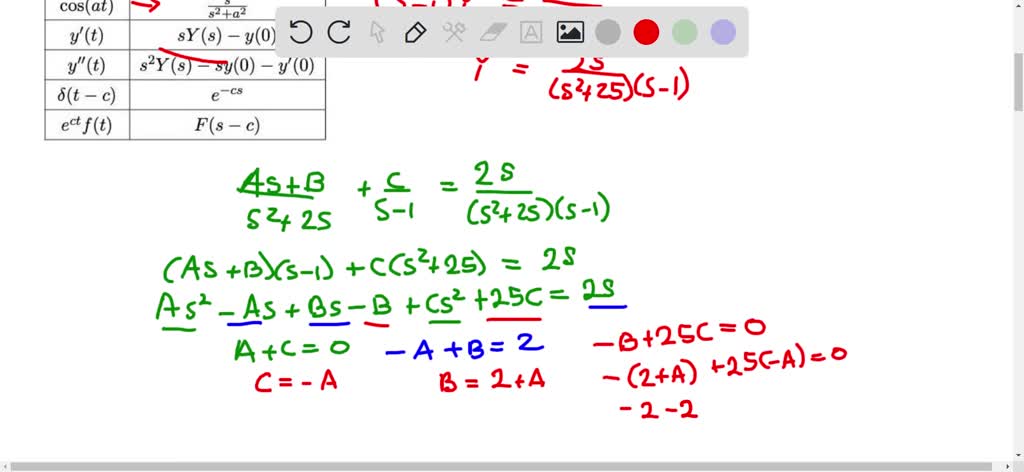 cos(at) → s/(s²+a²)
y′(t) sY(s) − y(0)
y″(t) s²Y(s) − sy(0) − y′(0)
δ(t − c) e^{−cs}
e^{ct} f(t) F(s − c)
Y = 2s/((s²+25)(s-1))
(As+B)/(s²+25) + C/(s-1) = 2s/((s²+25)(s-1))
(As+B)(s-1) + C(s²+25) = 2s
As² - As + Bs - B + Cs² + 25C = 2s
A + C = 0 -A + B = 2 -B + 25C = 0
C = -A B = 2 + A -(2+A) + 25(-A) = 0
-2 - 2